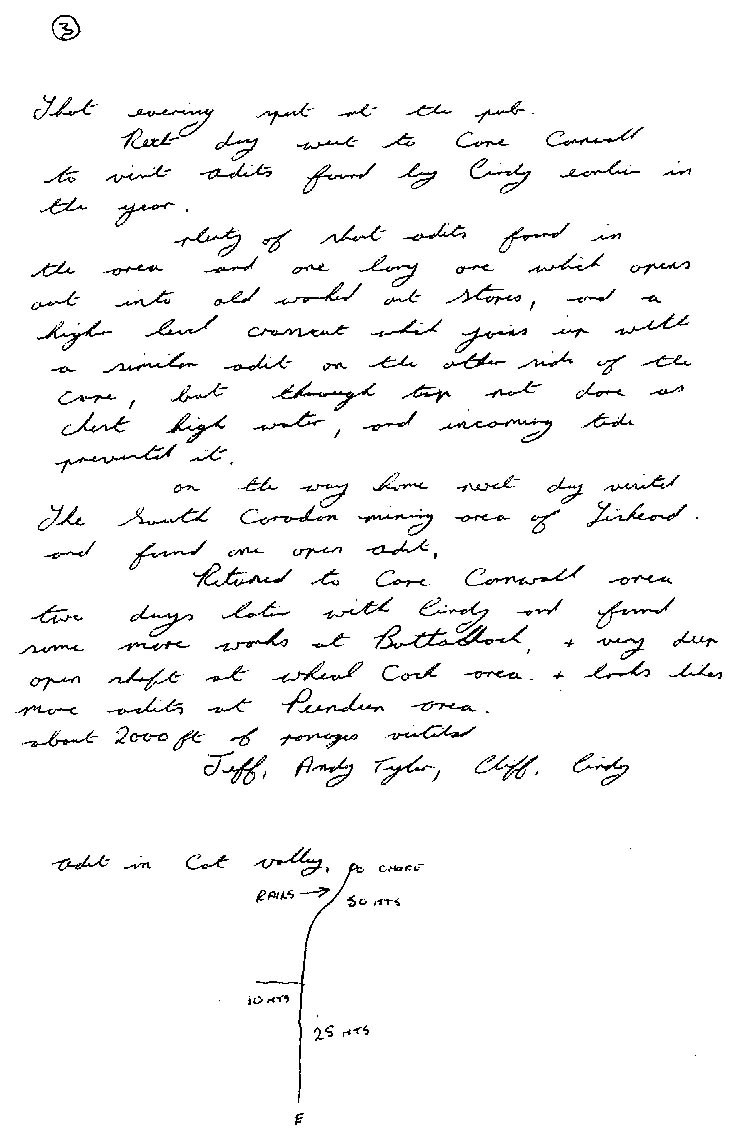 3
That evening spent at the pub.
Next day went to Cape Cornwall
to visit adits found by Cindy earlier in
the year.
plenty of short adits found in
the area and one long one which opens
out into old worked out stopes, and a
higher level crosscut which joins up with
a similar adit on the other side of the
Cape, but through trip not done as
chest high water, and incoming tide
prevented it.
on the way home next day visited
The South Caradon mining area of Liskeard.
and found one open adit.
Returned to Cape Cornwall area
two days later with Cindy and found
some more works at Bottallock, + very deep
open shaft at wheal Cock area. + looks likes
more adits at Pendeen area.
about 2000 ft of passages visited
Jeff, Andy Tyler, Cliff, Cindy
adit in Cot valley.
CHOKE
RAILS
50 MTS
10 MTS
25 MTS
E